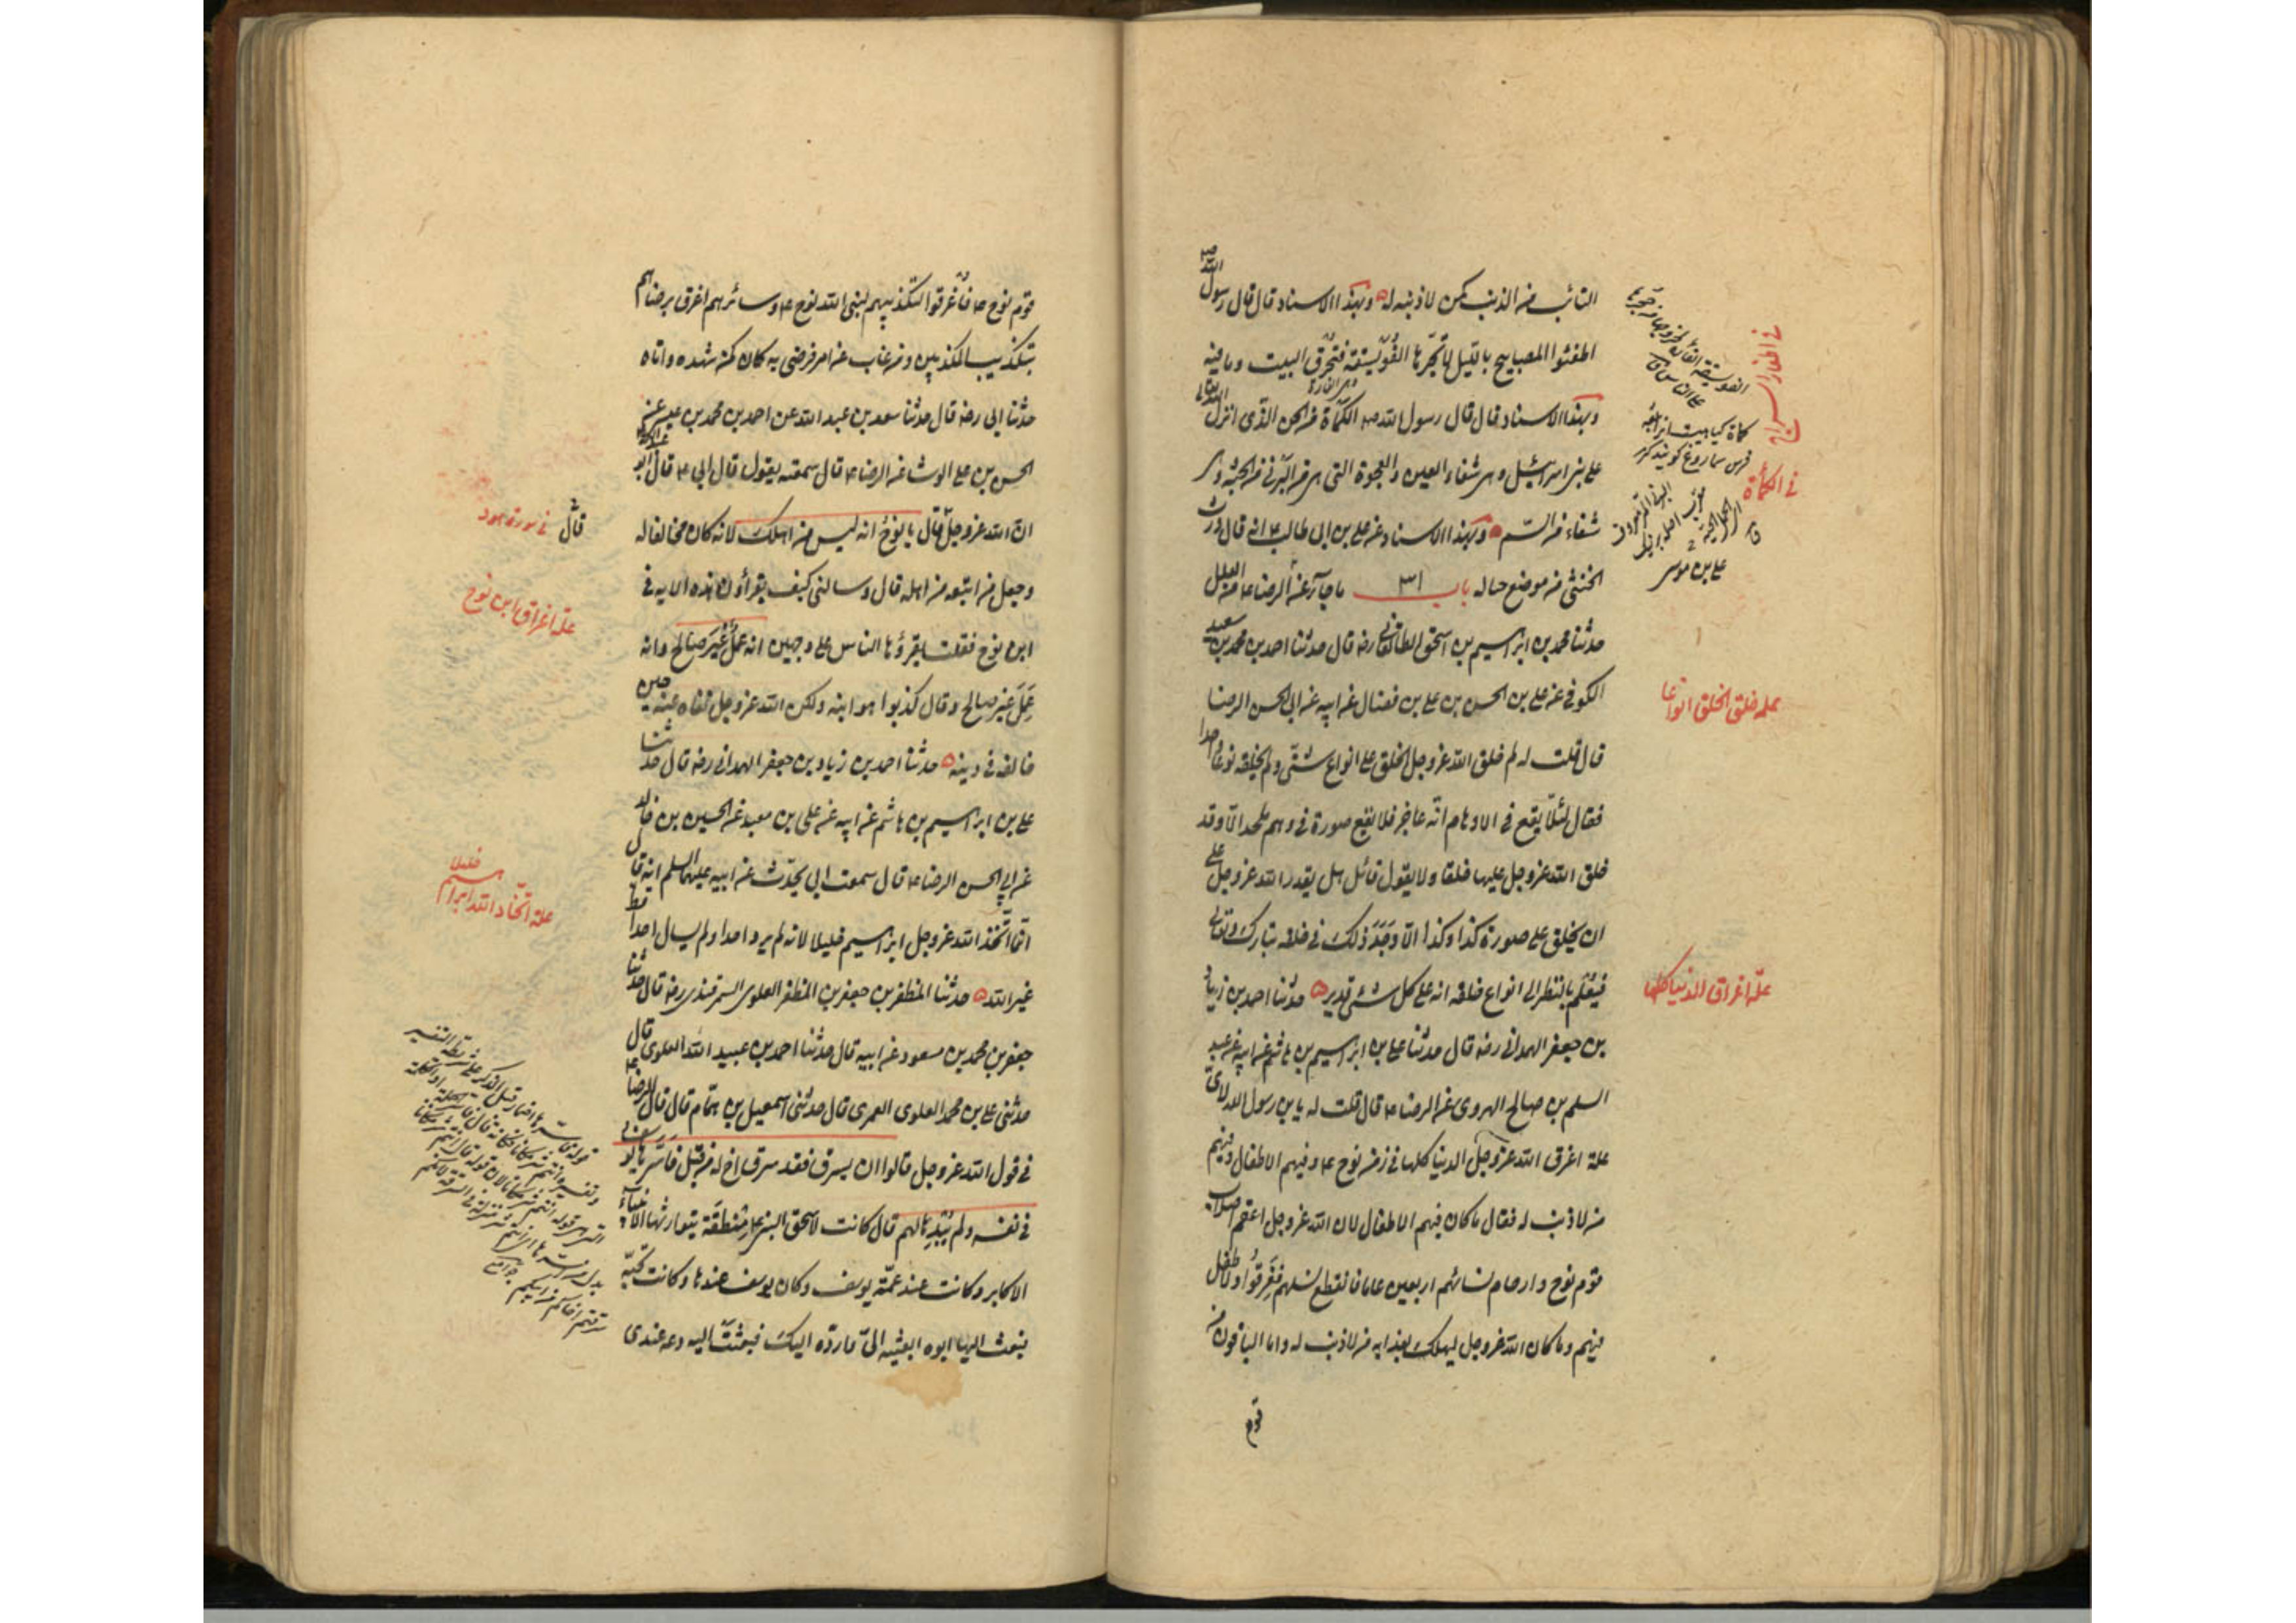 التائب من الذنب كمن لا ذنب له وبهذا الاسناد قال قال رسول الله صم
اطفئوا المصابيح بالليل لا تجرها الفويسقة فتحرق البيت وما فيه
وبهذا الاسناد قال قال رسول الله صم الكمأة من المن الذى انزل الله تعالى
على بنى اسرائيل وهى شفاء العين والعجوة التى هى من البرنى من الجنة وهى
شفاء من السم وبهذا الاسناد عن على بن ابى طالب ع انه قال ورث
الخنثى من موضع مباله باب ٣١ ما جآء عن الرضا ع من العلل
حدثنا محمد بن ابراهيم بن اسحق الطالقانى رضه قال حدثنا احمد بن محمد بن سعيد
الكوفى عن على بن الحسن بن على بن فضال عن ابيه عن ابى الحسن الرضا
قال قلت له لم خلق الله عز وجل الخلق على انواع شتى ولم يخلقه نوعا واحدا
فقال لئلا يقع فى الاوهام انه عاجز فلا يقع صورة فى وهم ملحد الا وقد
خلق الله عز وجل عليها خلقا ولا يقول قائل هل يقدر الله عز وجل على
ان يخلق على صورة كذا وكذا الا وجد ذلك فى خلقه تبارك وتعالى
فيعلم بالنظر الى انواع خلقه انه على كل شئ قدير حدثنا احمد بن زياد
بن جعفر الهمدانى رضه قال حدثنا على بن ابراهيم بن هاشم عن ابيه عن عبد
السلم بن صالح الهروى عن الرضا ع قال قلت له يا بن رسول الله لاى
علة اغرق الله عز وجل الدنيا كلها فى زمن نوح ع وفيهم الاطفال وفيهم
من لا ذنب له فقال ما كان فيهم الاطفال لان الله عز وجل اعقم اصلاب
قوم نوح وارحام نسائهم اربعين عاما فانقطع نسلهم فغرقوا ولا طفل
فيهم وما كان الله عز وجل ليهلك بعذابه من لا ذنب له واما الباقون من
قوم
فى اطفاء السراج
فى الكمأة
على بن موسى
علة خلق الخلق انواعا
علة اغراق الدنيا كلها
قوم نوح ع فاغرقوا لتكذيبهم لنبى الله نوح ع وسائرهم اغرق برضاهم
بتكذيب المكذبين ومن غاب عن امر فرضى به كان كمن شهده واتاه
حدثنا ابى رضه قال حدثنا سعد بن عبد الله عن احمد بن محمد بن عيسى عن
الحسن بن على الوشا عن الرضا ع قال سمعته يقول قال ابى ع قال ابو عبد الله ع
ان الله عز وجل قال يا نوح انه ليس من اهلك لانه كان مخالفا له
وجعل من اتبعه من اهله قال وسالنى كيف يقرأون هذه الاية فى
ابن نوح فقلت يقرؤها الناس على وجهين انه عمل غير صالح وانه
عمل غير صالح وقال كذبوا هو ابنه ولكن الله عز وجل نفاه عنه حين
خالفه فى دينه حدثنا احمد بن زياد بن جعفر الهمدانى رضه قال حدثنا
على بن ابراهيم بن هاشم عن ابيه عن على بن معبد عن الحسين بن خالد
عن ابى الحسن الرضا ع قال سمعت ابى يحدث عن ابيه عليهما السلم انه قال
انما اتخذ الله عز وجل ابراهيم خليلا لانه لم يرد احدا ولم يسال احدا قط
غير الله حدثنا المظفر بن جعفر بن المظفر العلوى السمرقندى رضه قال حدثنا
جعفر بن محمد بن مسعود عن ابيه قال حدثنا احمد بن عبيد الله العلوى قال
حدثنى على بن محمد العلوى العمرى قال حدثنى اسمعيل بن همام قال قال الرضا ع
فى قول الله عز وجل قالوا ان يسرق فقد سرق اخ له من قبل فاسرها يوسف
فى نفسه ولم يبدها لهم قال كانت لاسحق النبى ع منطقة يتوارثها الانبياء و
الاكابر وكانت عند عمة يوسف وكان يوسف عندها وكانت تحبه
فبعث اليها ابوه ابعثيه الى وارده اليك فبعثت اليه دعه عندى
قال فى سورة هود
علة اغراق ابن نوح
علة اتخاذ الله ابراهيم خليلا